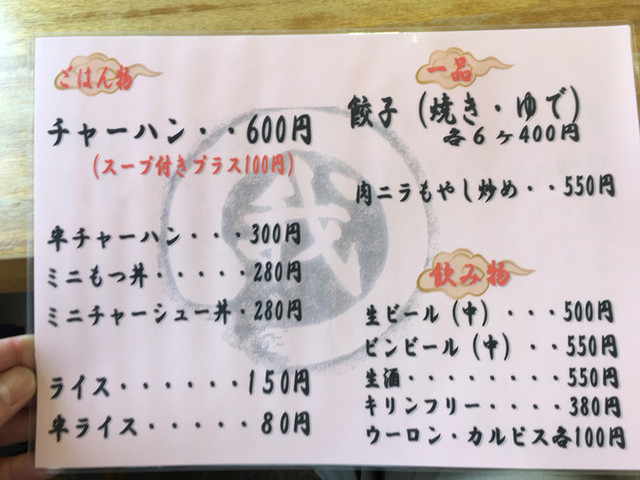 ごはん物
チャーハン・・600円
(スープ付きプラス100円)
半チャーハン・・・300円
ミニもつ丼・・・・・280円
ミニチャーシュー丼・280円
ライス・・・・・・150円
半ライス・・・・・80円
一品
餃子(焼き・ゆで)
各6ヶ400円
肉ニラもやし炒め・・550円
飲み物
生ビール(中)・・・500円
ビンビール(中)・・550円
生酒・・・・・・・・550円
キリンフリー・・・・380円
ウーロン・カルピス各100円
我